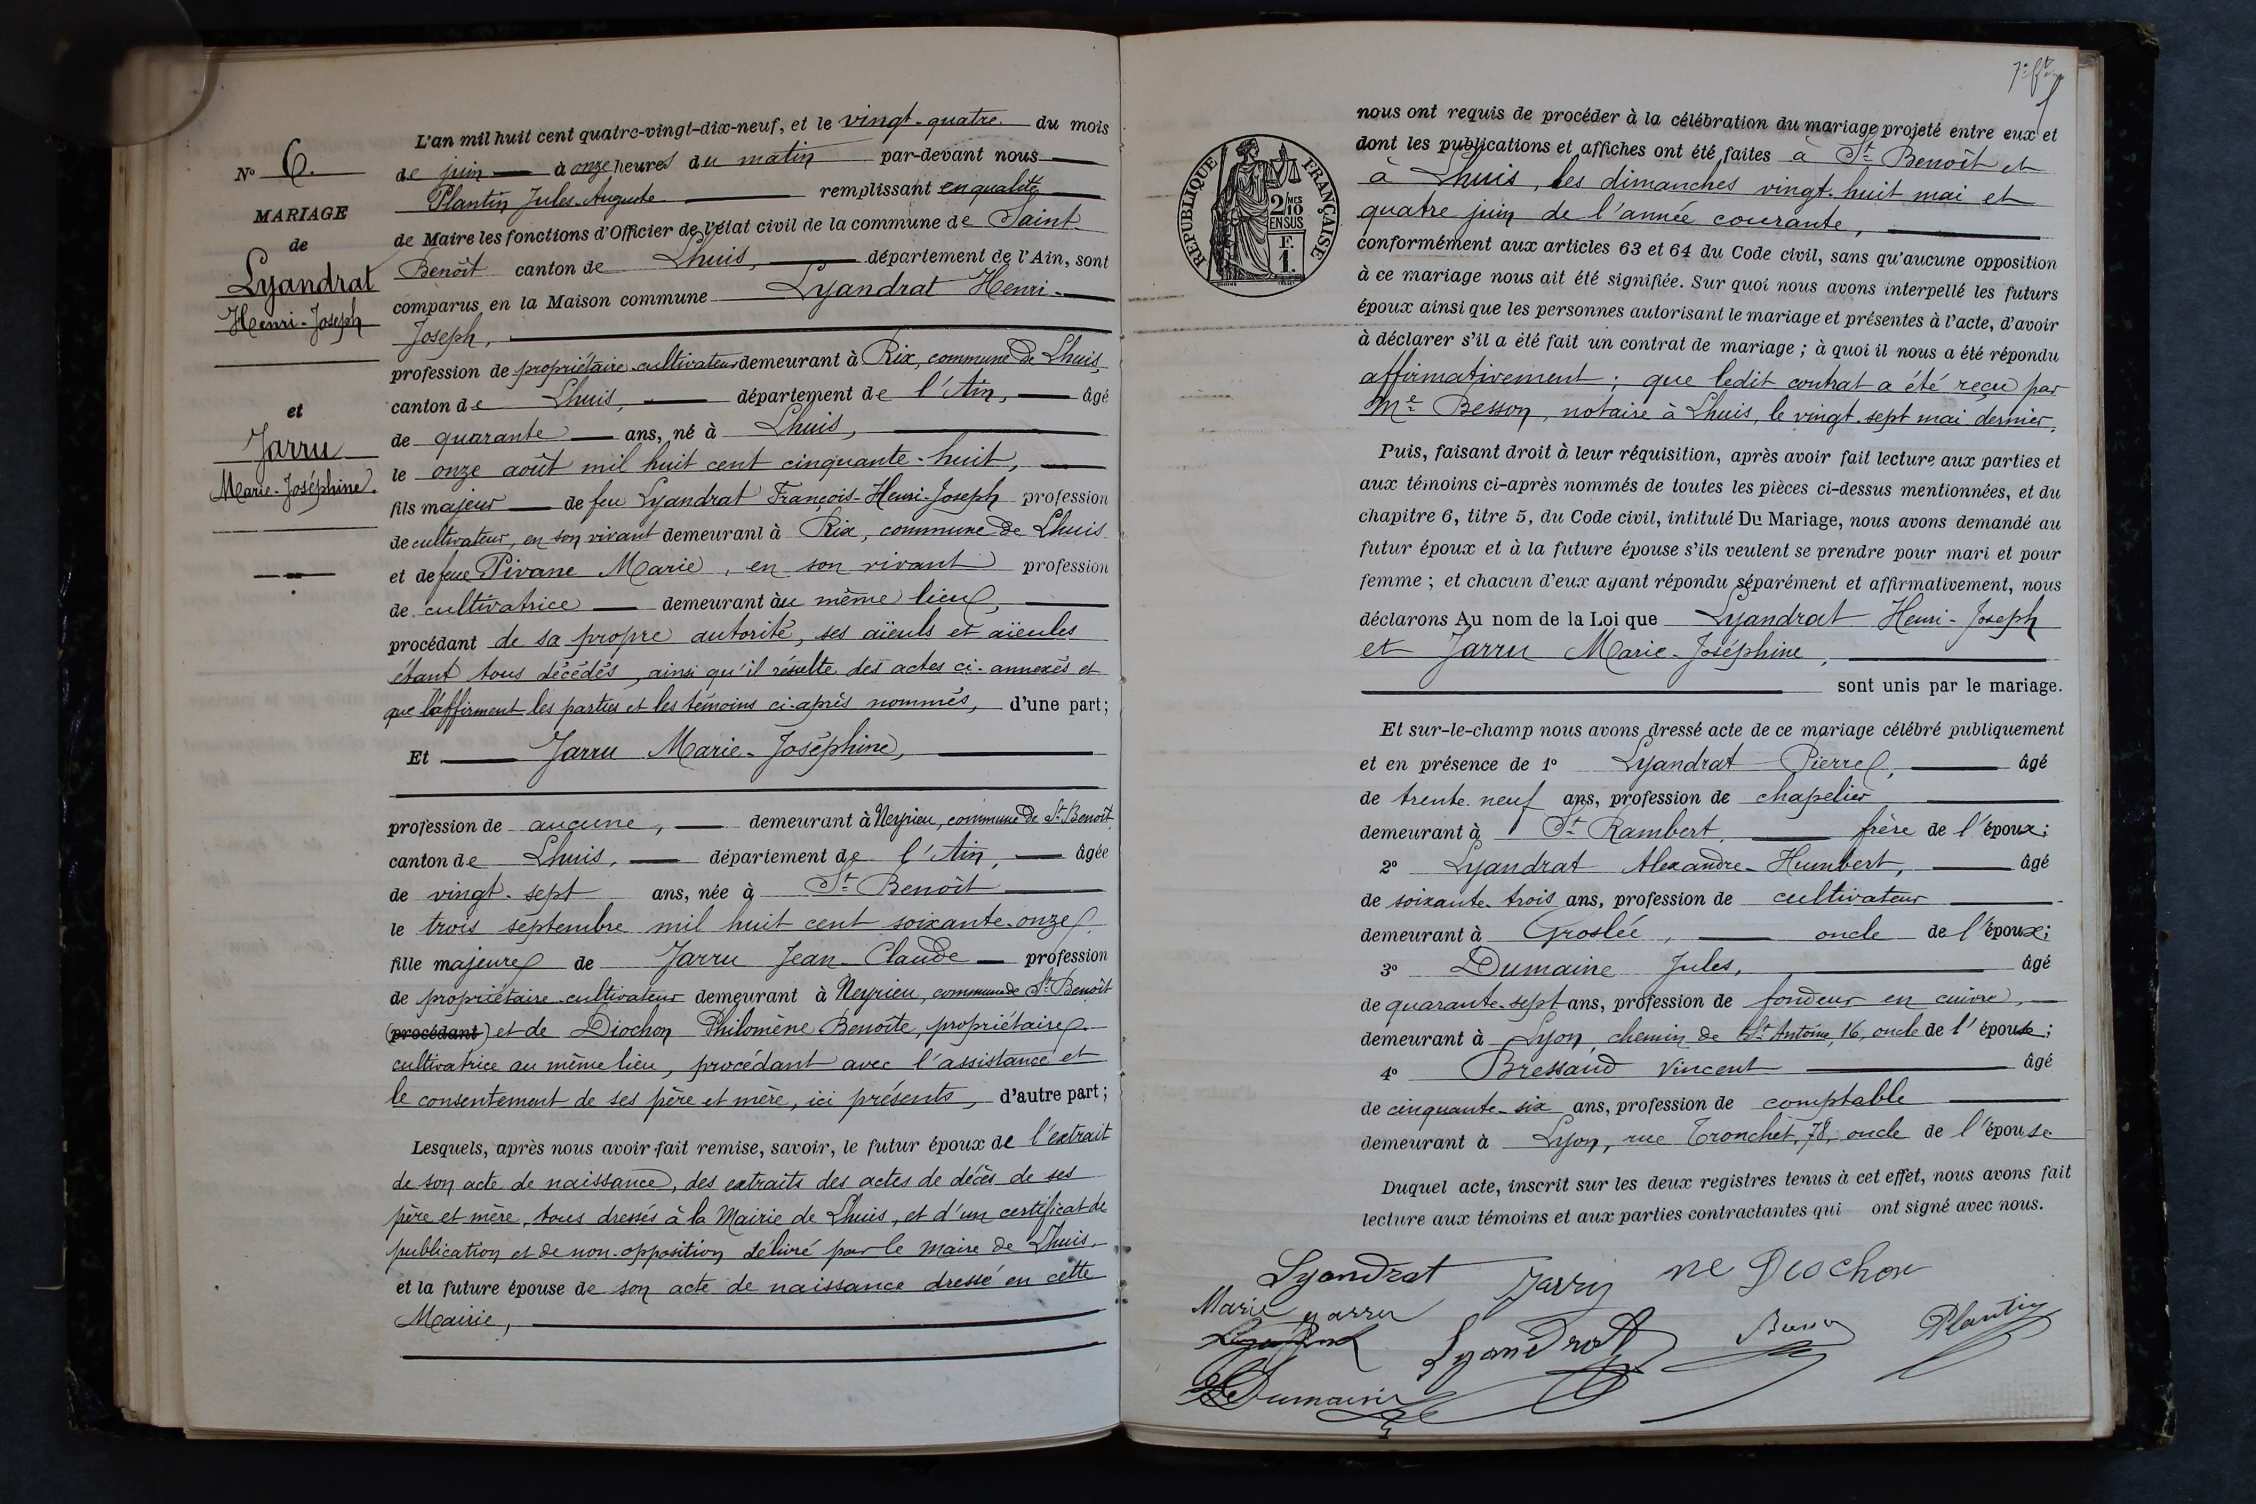 N° 6.
MARIAGE
de
Lyandrat
Henri-Joseph
et
Jarru
Marie-Joséphine.
L'an mil huit cent quatre-vingt-dix-neuf, et le vingt-quatre du mois
de juin à onze heures du matin par-devant nous
Plantin Jules-Auguste remplissant en qualité
de Maire les fonctions d'Officier de l'état civil de la commune de Saint-
Benoît canton de Lhuis, département de l'Ain, sont
comparus en la Maison commune Lyandrat Henri-
Joseph,
profession de propriétaire-cultivateur demeurant à Rix, commune de Lhuis,
canton de Lhuis, département de l'Ain, âgé
de quarante ans, né à Lhuis,
le onze août mil huit cent cinquante-huit,
fils majeur de feu Lyandrat François-Henri-Joseph profession
de cultivateur, en son vivant demeurant à Rix, commune de Lhuis
et de feue Pivane Marie, en son vivant profession
de cultivatrice demeurant au même lieu,
procédant de sa propre autorité, ses aïeuls et aïeules
étant tous décédés, ainsi qu'il résulte des actes ci-annexés et
que l'affirment les parties et les témoins ci-après nommés, d'une part;
Et Jarru Marie-Joséphine,
profession de aucune, demeurant à Neyrieu, commune de St Benoît
canton de Lhuis, département de l'Ain, âgée
de vingt-sept ans, née à St Benoît
le trois septembre mil huit cent soixante-onze
fille majeure de Jarru Jean-Claude profession
de propriétaire-cultivateur demeurant à Neyrieu, commune de St Benoît
(procédant) et de Diochon Philomène Benoîte, propriétaire-
cultivatrice au même lieu, procédant avec l'assistance et
le consentement de ses père et mère, ici présents, d'autre part;
Lesquels, après nous avoir fait remise, savoir, le futur époux de l'extrait
de son acte de naissance, des extraits des actes de décès de ses
père et mère, tous dressés à la Mairie de Lhuis, et d'un certificat de
publication et de non-opposition délivré par le maire de Lhuis,
et la future épouse de son acte de naissance dressé en cette
Mairie,
REPUBLIQUE FRANÇAISE
2/10 MES
EN SUS
F.
1.
nous ont requis de procéder à la célébration du mariage projeté entre eux et
dont les publications et affiches ont été faites à St Benoît et
à Lhuis, les dimanches vingt-huit mai et
quatre juin de l'année courante,
conformément aux articles 63 et 64 du Code civil, sans qu'aucune opposition
à ce mariage nous ait été signifiée. Sur quoi nous avons interpellé les futurs
époux ainsi que les personnes autorisant le mariage et présentes à l'acte, d'avoir
à déclarer s'il a été fait un contrat de mariage; à quoi il nous a été répondu
affirmativement; que ledit contrat a été reçu par
Me Besson, notaire à Lhuis, le vingt-sept mai dernier.
Puis, faisant droit à leur réquisition, après avoir fait lecture aux parties et
aux témoins ci-après nommés de toutes les pièces ci-dessus mentionnées, et du
chapitre 6, titre 5, du Code civil, intitulé Du Mariage, nous avons demandé au
futur époux et à la future épouse s'ils veulent se prendre pour mari et pour
femme; et chacun d'eux ayant répondu séparément et affirmativement, nous
déclarons Au nom de la Loi que Lyandrat Henri-Joseph
et Jarru Marie-Joséphine,
sont unis par le mariage.
Et sur-le-champ nous avons dressé acte de ce mariage célébré publiquement
et en présence de 1° Lyandrat Pierre, âgé
de trente-neuf ans, profession de chapelier
demeurant à St Rambert, frère de l'époux;
2° Lyandrat Alexandre-Humbert, âgé
de soixante-trois ans, profession de cultivateur
demeurant à Groslée, oncle de l'époux;
3° Dumaine Jules, âgé
de quarante-sept ans, profession de fondeur en cuivre,
demeurant à Lyon, chemin de St Antoine, 16, oncle de l'épouse;
4° Bressaud Vincent âgé
de cinquante-six ans, profession de comptable
demeurant à Lyon, rue Tronchet, 78, oncle de l'épouse
Duquel acte, inscrit sur les deux registres tenus à cet effet, nous avons fait
lecture aux témoins et aux parties contractantes qui ont signé avec nous.
Lyandrat Jarru ne Diochon
Marie yarru
Lyandrat Plantin
Dumaine